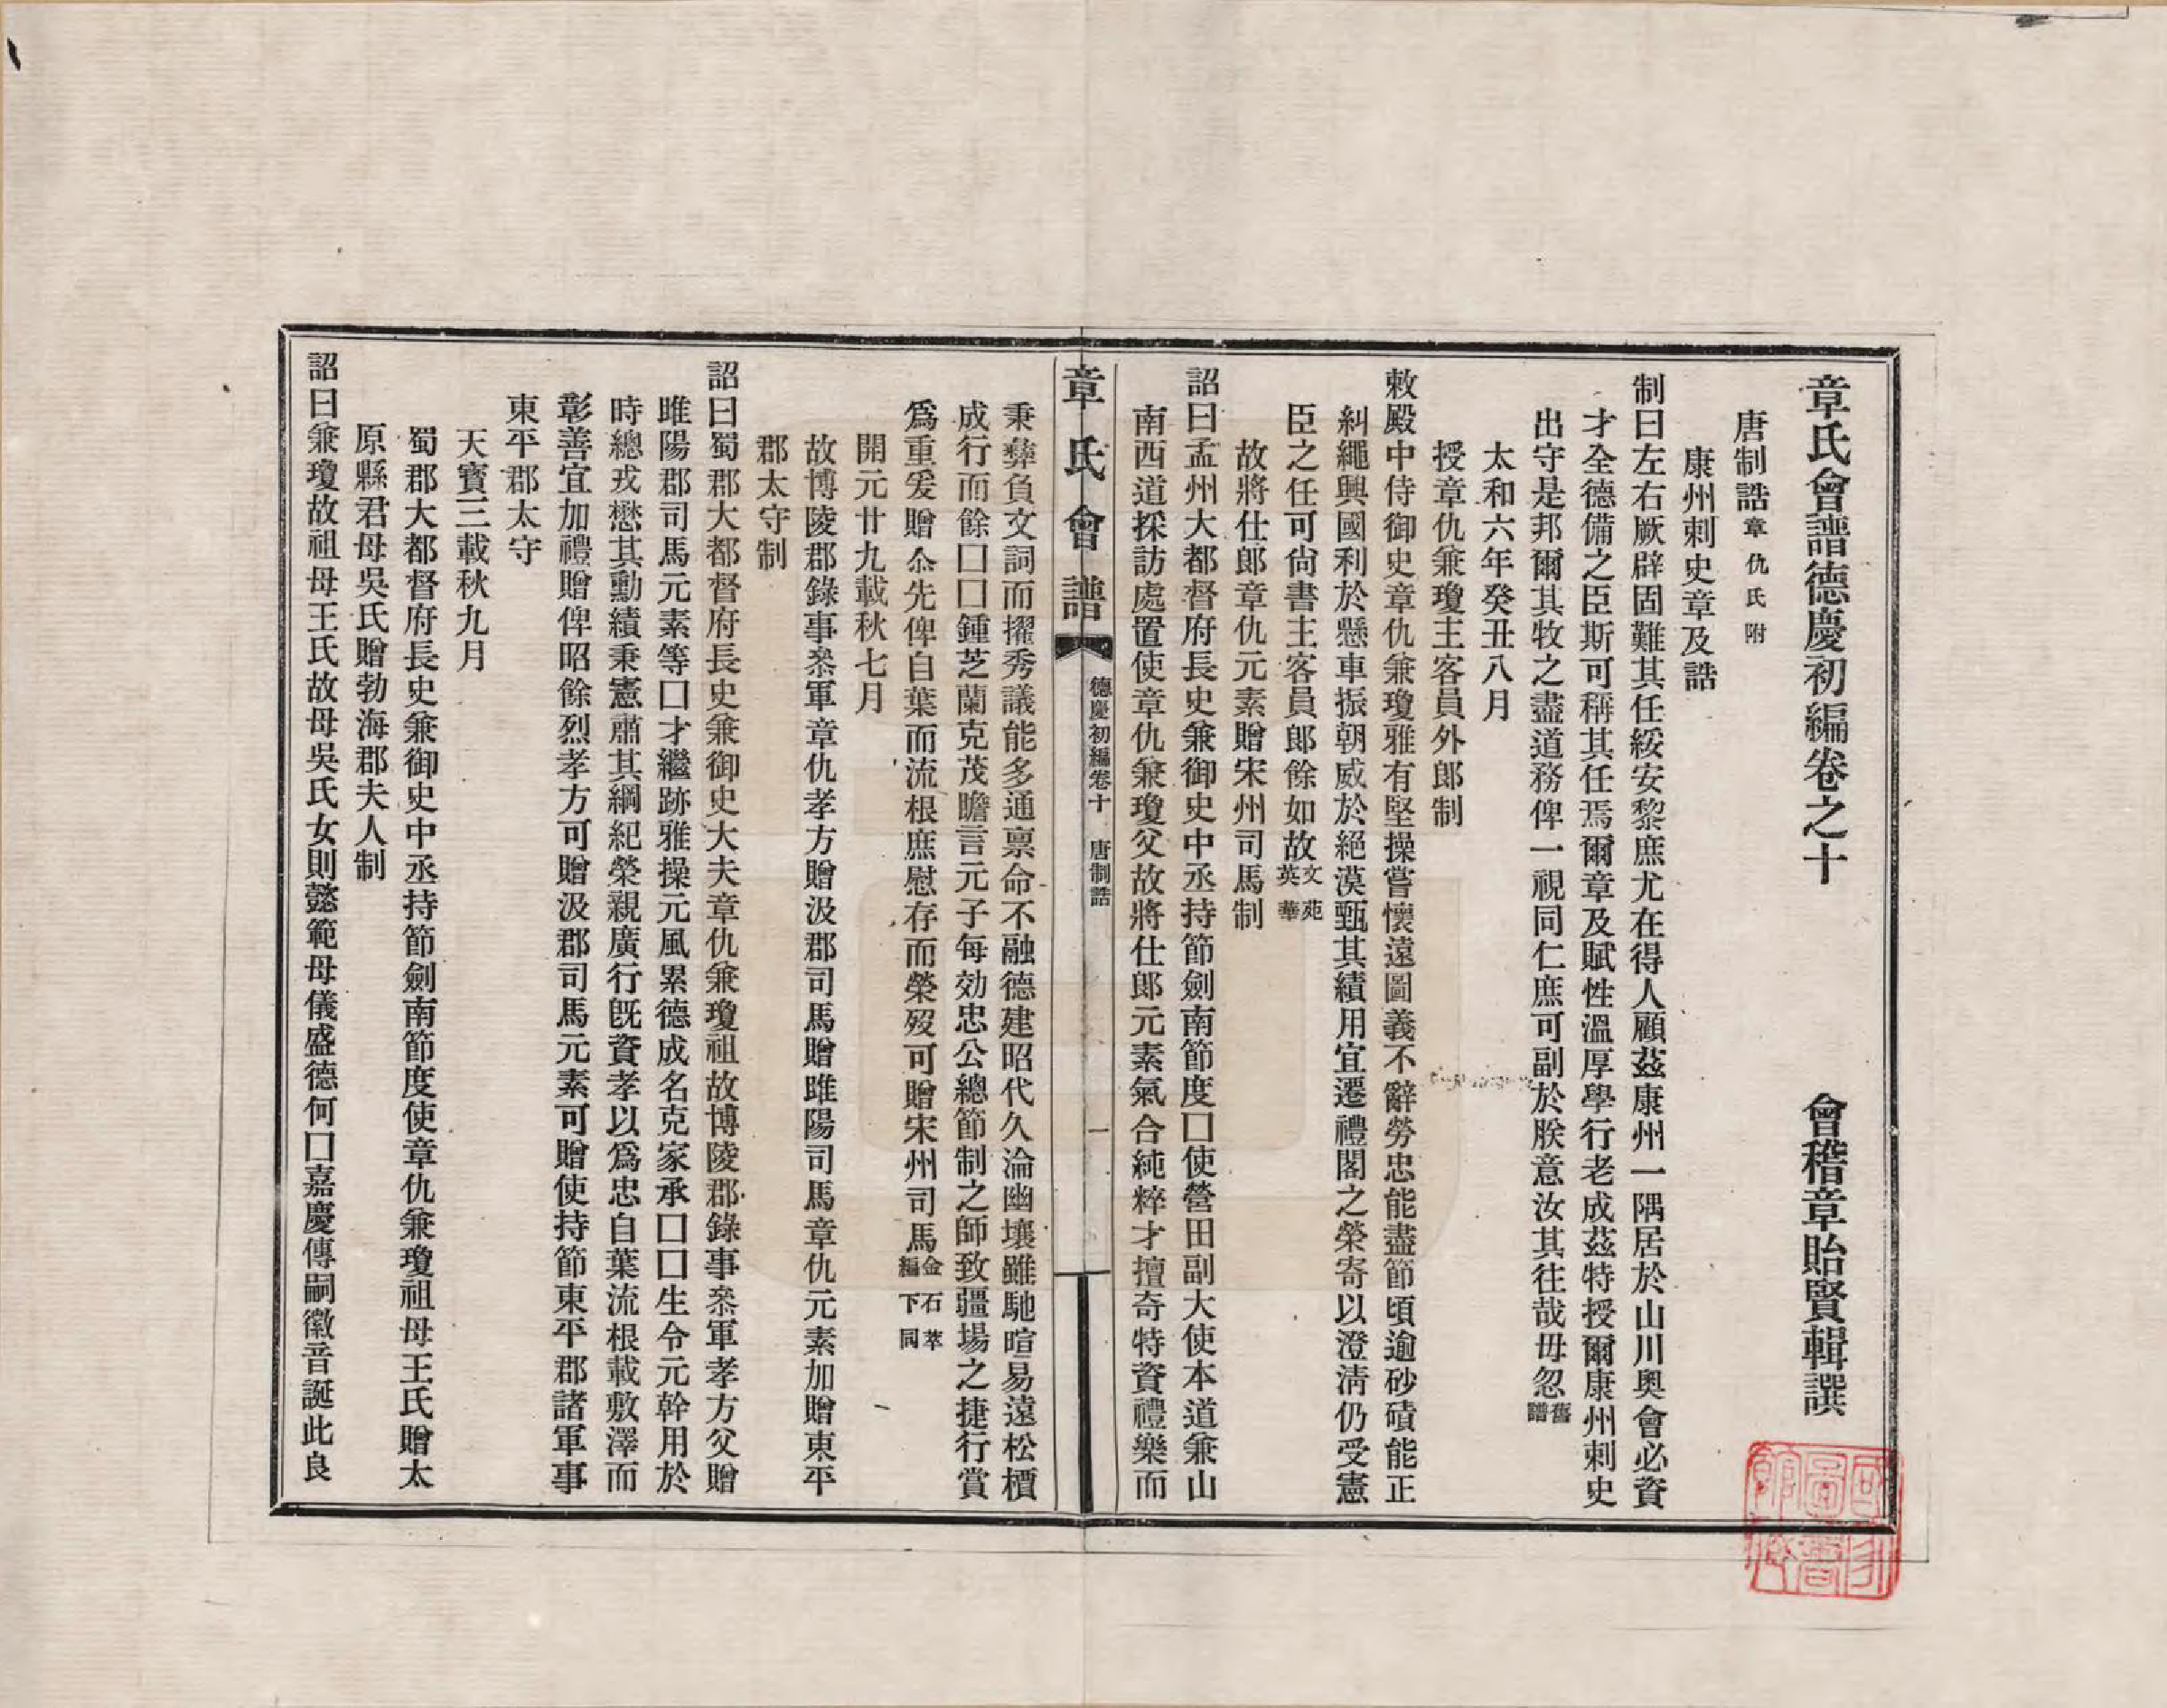 章氏會譜德慶初編卷之十　會稽章貽賢輯譔
唐制誥章仇氏附
康州刺史章及誥
制曰左右厥辟固難其任綏安黎庶尤在得人顧茲康州一隅居於山川奧會必資
才全德備之臣斯可稱其任焉爾章及賦性溫厚學行老成茲特授爾康州刺史
出守是邦爾其牧之盡道務俾一視同仁庶可副於朕意汝其往哉毋忽舊譜
太和六年癸丑八月
授章仇兼瓊主客員外郎制
敕殿中侍御史章仇兼瓊雅有堅操嘗懷遠圖義不辭勞忠能盡節頃逾砂磧能正
糾繩興國利於懸車振朝威於絕漠甄其績用宜遷禮閣之榮寄以澄清仍受憲
臣之任可尙書主客員郎餘如故文苑英華
故將仕郎章仇元素贈宋州司馬制
詔曰孟州大都督府長史兼御史中丞持節劍南節度囗使營田副大使本道兼山
南西道採訪處置使章仇兼瓊父故將仕郎元素氣合純粹才擅奇特資禮樂而
章氏會譜　德慶初編卷十　唐制誥　一
秉彝負文詞而擢秀議能多通禀命不融德建昭代久淪幽壤雖馳暄易遠松檟
成行而餘囗囗鍾芝蘭克茂瞻言元子每効忠公總節制之師致疆場之捷行賞
爲重爰贈尒先俾自葉而流根庶慰存而榮歿可贈宋州司馬金石萃編下同
開元廿九載秋七月
故博陵郡錄事叅軍章仇孝方贈汲郡司馬贈雎陽司馬章仇元素加贈東平
郡太守制
詔曰蜀郡大都督府長史兼御史大夫章仇兼瓊祖故博陵郡錄事叅軍孝方父贈
雎陽郡司馬元素等囗才繼跡雅操元風累德成名克家承囗囗生令元幹用於
時總戎懋其勳績秉憲肅其綱紀榮親廣行旣資孝以爲忠自葉流根載敷澤而
彰善宜加禮贈俾昭餘烈孝方可贈汲郡司馬元素可贈使持節東平郡諸軍事
東平郡太守
天寶三載秋九月
蜀郡大都督府長史兼御史中丞持節劍南節度使章仇兼瓊祖母王氏贈太
原縣君母吳氏贈勃海郡夫人制
詔曰兼瓊故祖母王氏故母吳氏女則懿範母儀盛德何囗嘉慶傳嗣徽音誕此良
國家圖書館藏